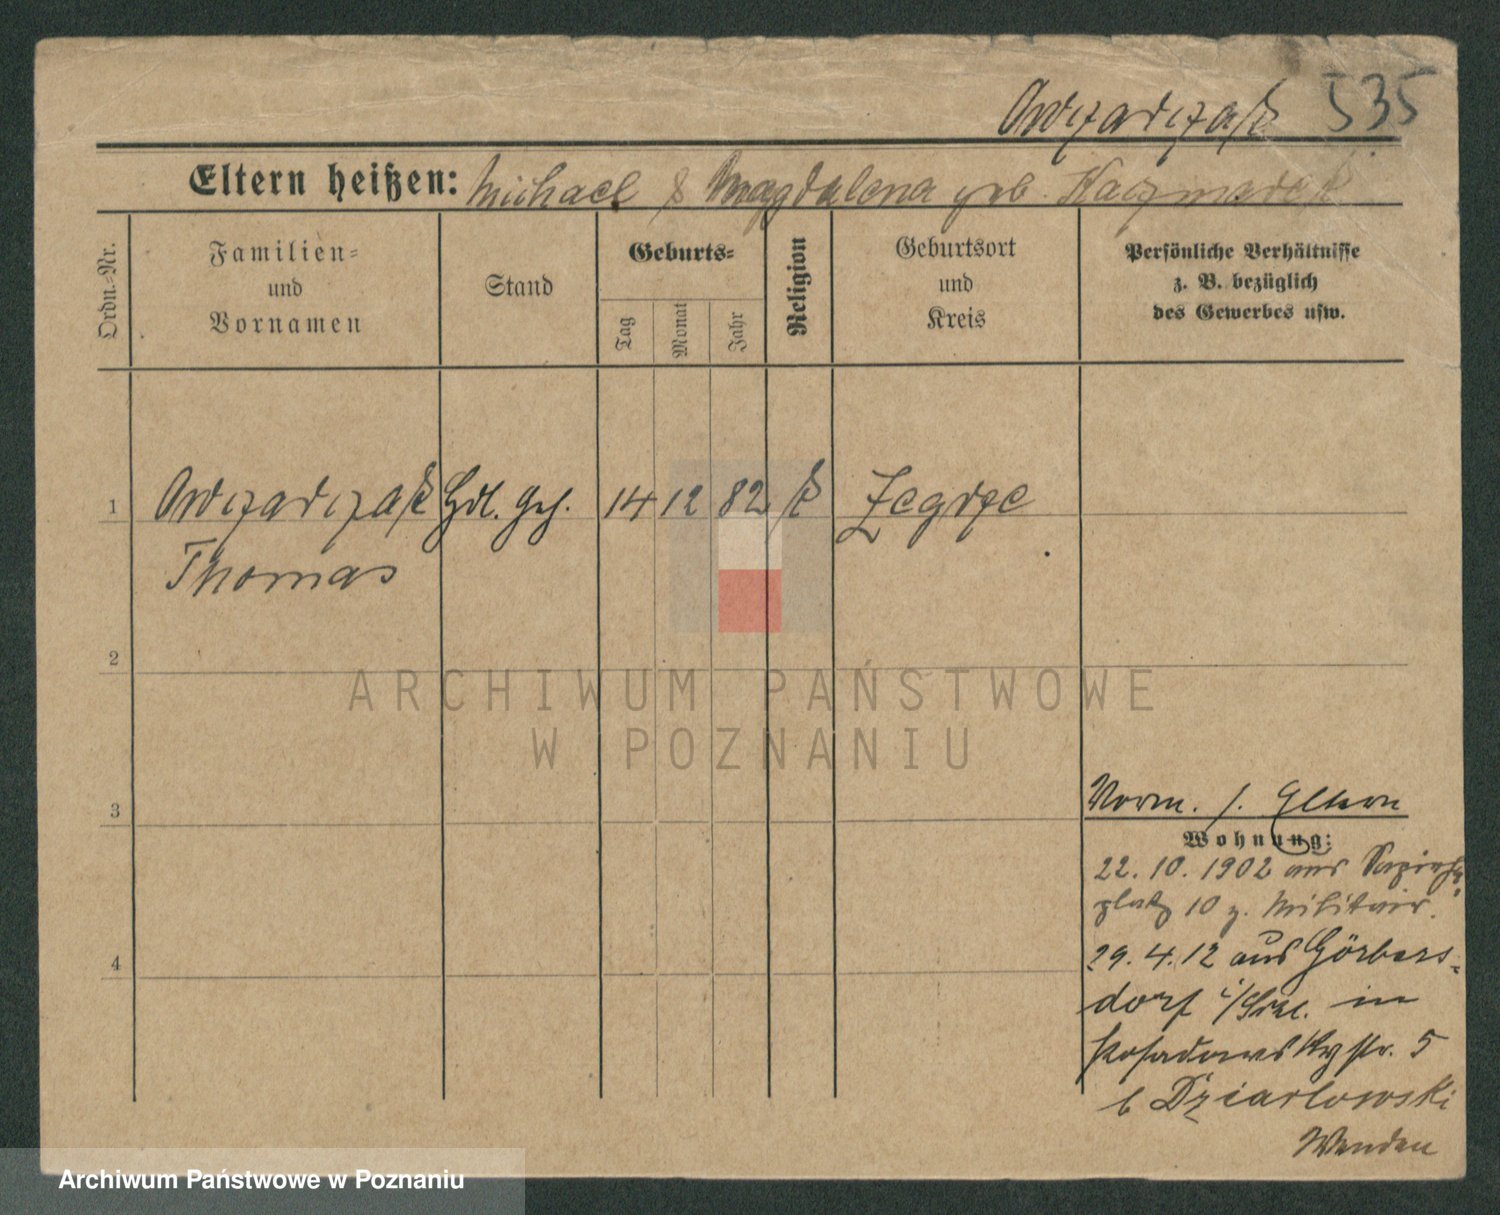 Owczarczak 535
Eltern heißen: Michael & Magdalena geb. Kaczmarek
Ordn.-Nr.
Familien-
und
Vornamen
Stand
Geburts-
Tag
Monat
Jahr
Religion
Geburtsort
und
Kreis
Persönliche Verhältnisse
z. B. bezüglich
des Gewerbes usw.
1 Owczarczak Hdl. Geh. 14 12 82 k Zegrze
Thomas
2
3
4
Vorm. s. Eltern
Wohnung:
22. 10. 1902 aus
platz 10 z. Militair.
29. 4. 12 aus Görbers-
dorf i/Schl. in
Posadowskystr. 5
b Dziarlowski
Wenden
ARCHIWUM PAŃSTWOWE
W POZNANIU
Archiwum Państwowe w Poznaniu